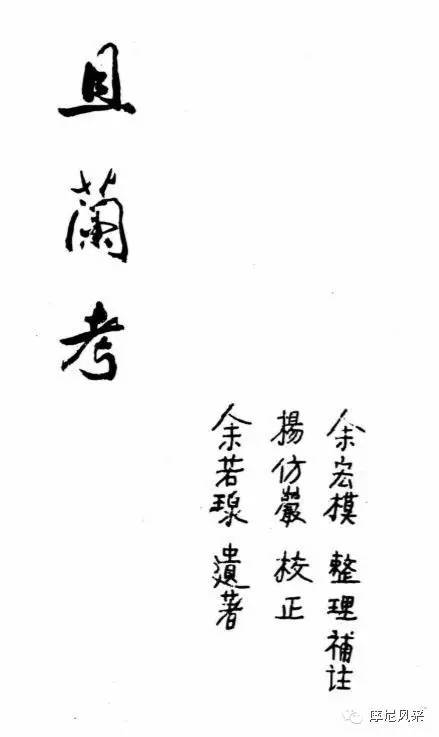 且蘭考
余宏模 整理補註
揚仿巖 校正
余若瑔 遺著
摩尼风采